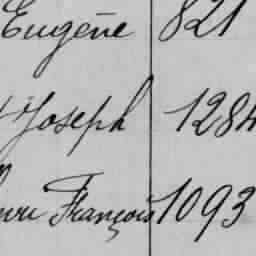 Eugène 821
Joseph 1284
François 1093